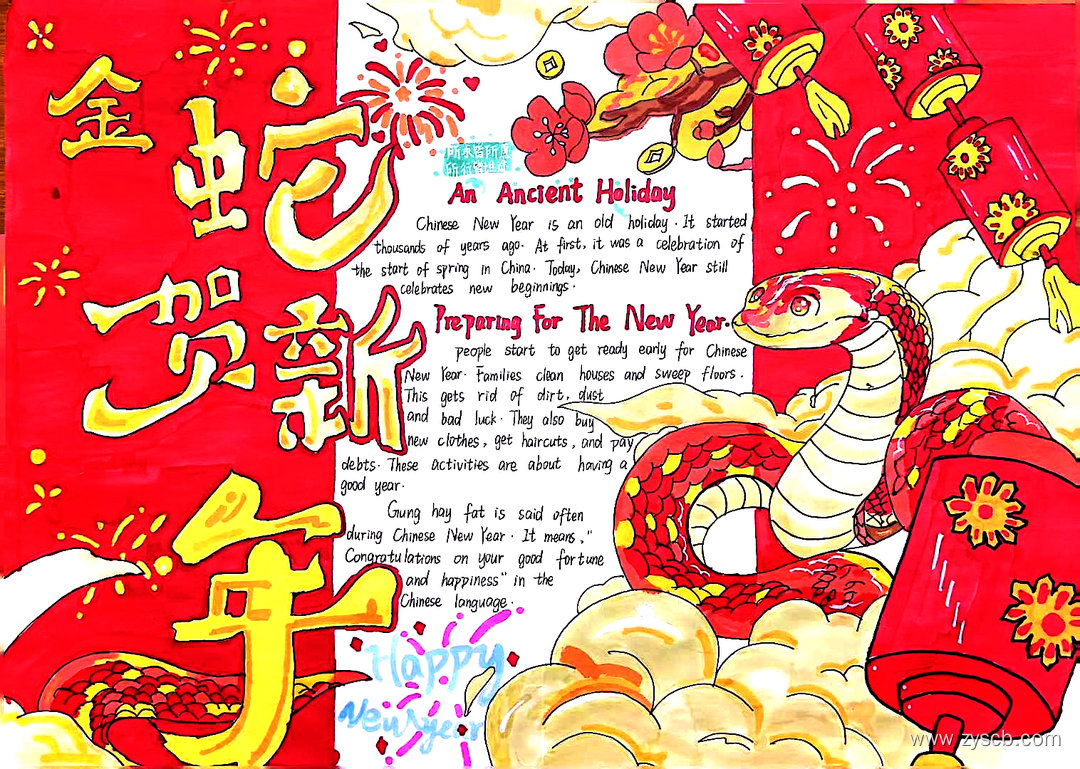 金蛇
贺新
年
所求皆所
所行皆坦
An Ancient Holiday
Chinese New Year is an old holiday. It started
thousands of years ago. At first, it was a celebration of
the start of spring in China. Today, Chinese New Year still
celebrates new beginnings.
Preparing For The New Year.
people start to get ready early for Chinese
New Year. Families clean houses and sweep floors.
This gets rid of dirt, dust
and bad luck. They also buy
new clothes, get haircuts, and pay
debts. These activities are about having a
good year.
Gung hay fat is said often
during Chinese New Year. It means, "
Congratulations on your good fortune
and happiness" in the
Chinese language.
Happy
New year
www.zyscb.com